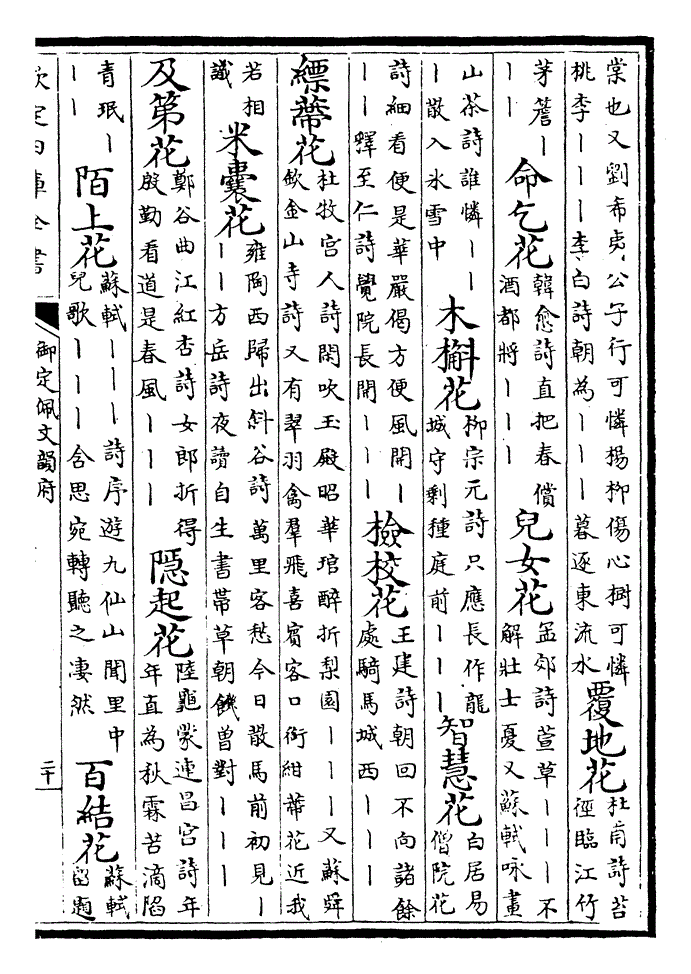 棠也又劉希夷公子行可憐楊柳傷心樹可憐桃李丨丨丨李白詩朝為丨丨丨暮逐東流水 覆地花 杜甫詩苔徑臨江竹
茅簷丨丨丨 命乞花 韓愈詩直把春償酒都將丨丨丨 兒女花 孟郊詩萱草丨丨丨不解壯士憂又蘇軾咏畫
山茶詩誰憐丨丨丨散入氷雪中 木槲花 柳宗元詩只應長作龍城守剩種庭前丨丨丨 智慧花 白居易僧院花
詩細看便是華嚴偈方便風開丨丨丨蟫至仁詩覺院長開丨丨丨 檢校花 王建詩朝回不向諸餘處騎馬城西丨丨丨
縹蔕花 杜牧宮人詩閑吹玉殿昭華琯醉折梨園丨丨丨又蘇舜欽金山寺詩又有翠羽禽羣飛喜賓客口銜紺蔕花近我
若相識 米囊花 雍陶西歸出斜谷詩萬里客愁今日散馬前初見丨丨丨方岳詩夜讀自生書帶草朝饑曾對丨丨丨
及第花 鄭谷曲江紅杏詩女郎折得殷勤看道是春風丨丨丨 隠起花 陸龜蒙連昌宫詩年年直為秋霖苦滴陷
青珉丨丨丨 陌上花 蘇軾丨丨丨詩序遊九仙山聞里中兒歌丨丨丨含思宛轉聽之凄然 百結花 蘇軾留題
欽定四庫全書 御定佩文韻府 二十